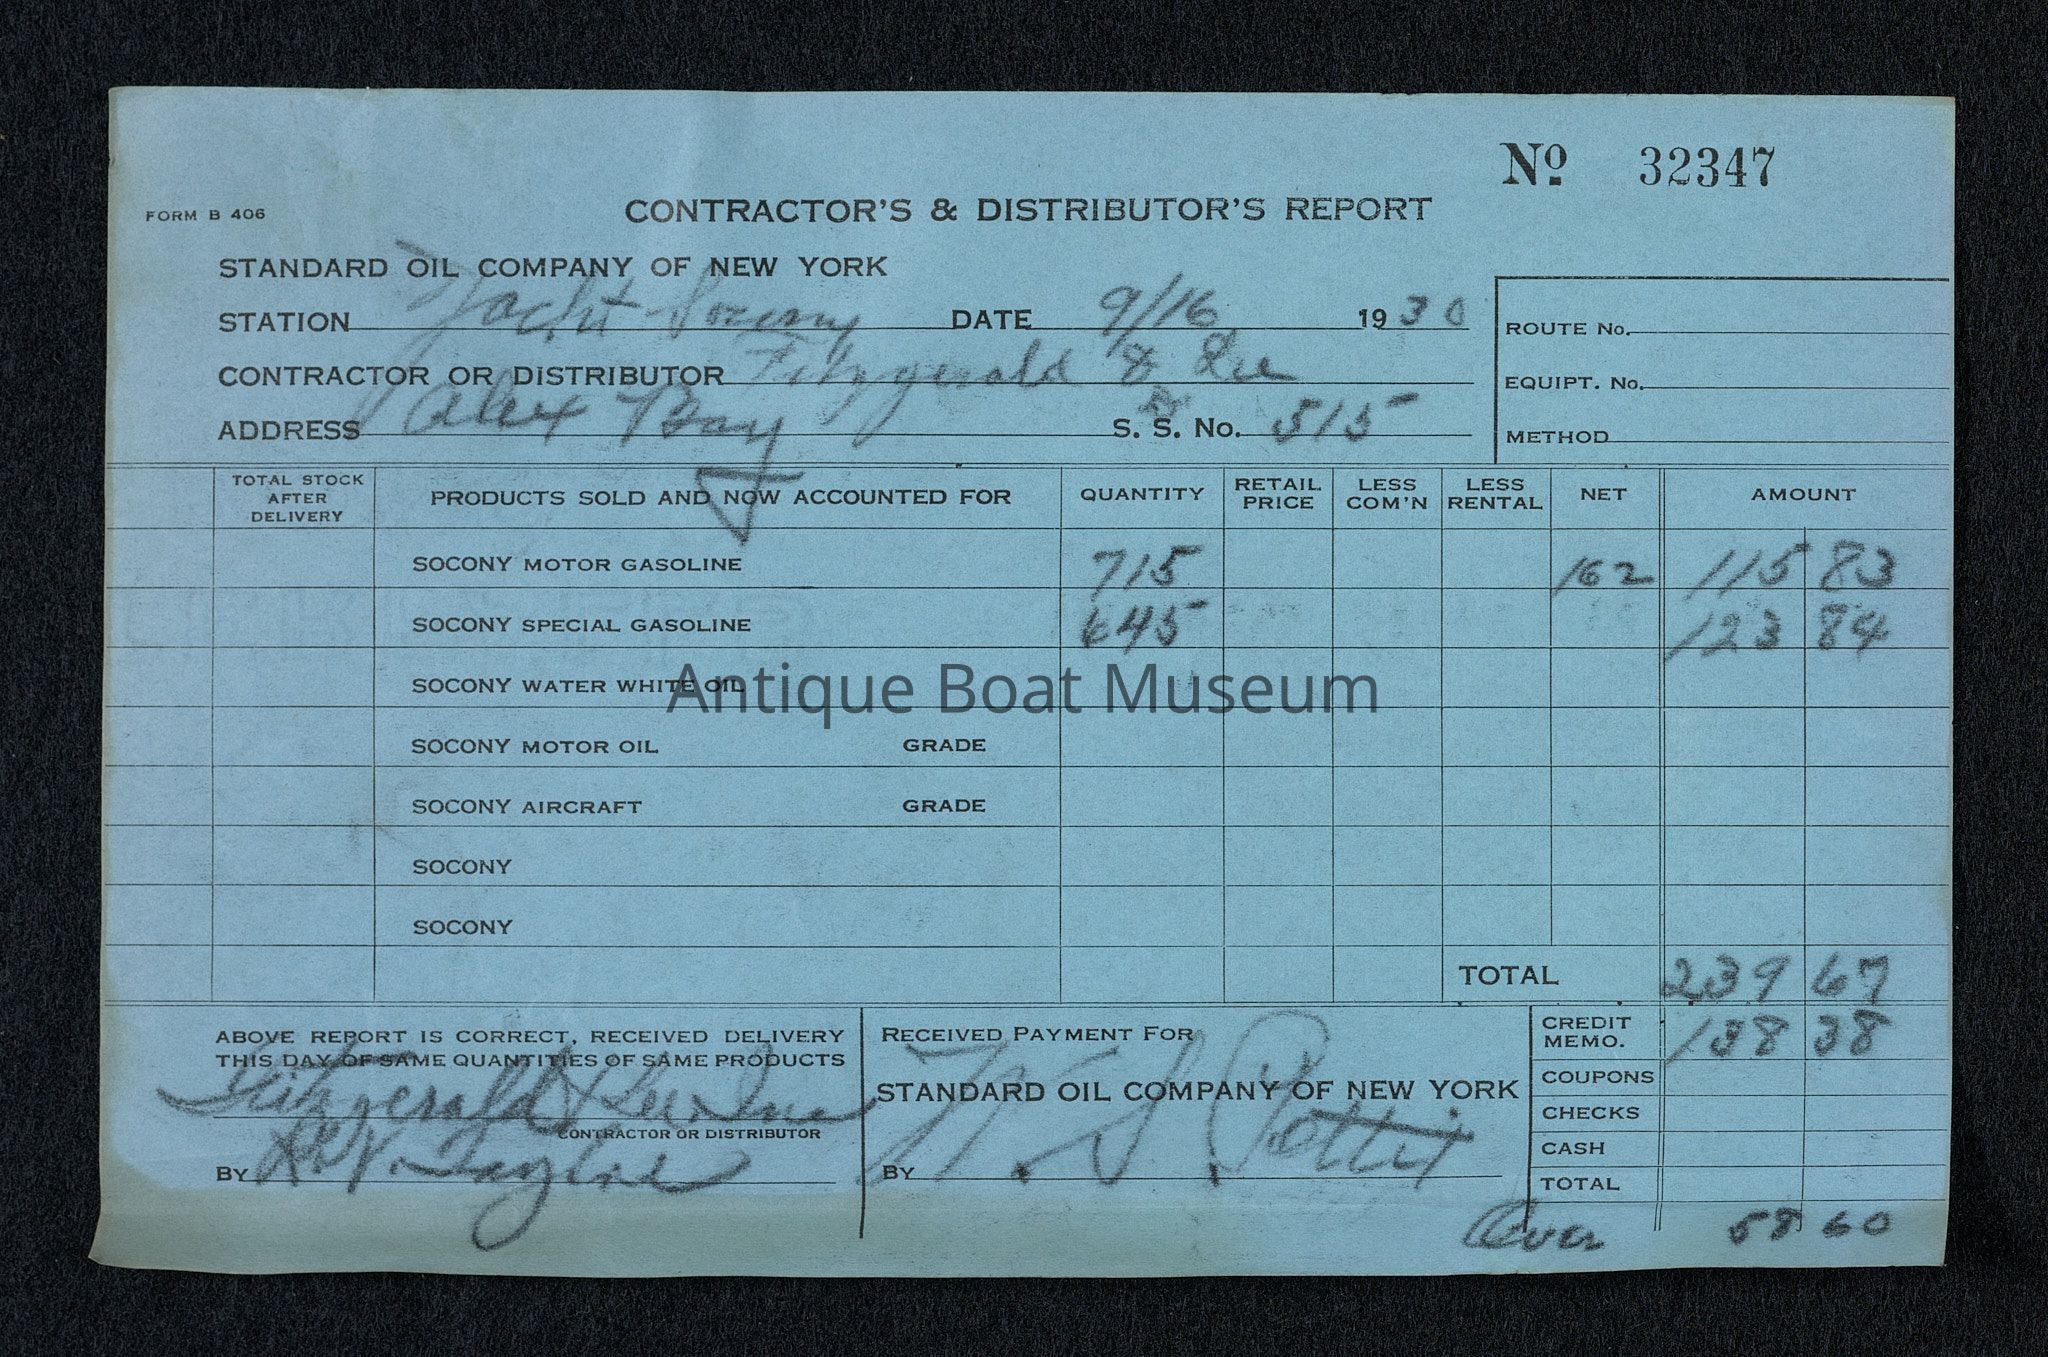 No 32347
FORM B 406
CONTRACTOR'S & DISTRIBUTOR'S REPORT
STANDARD OIL COMPANY OF NEW YORK
STATION Yacht Socony DATE 9/16 1930
ROUTE No.
CONTRACTOR OR DISTRIBUTOR Fitzgerald & Lee
EQUIPT. No.
ADDRESS Alex Bay S. S. No. 515
METHOD
TOTAL STOCK AFTER DELIVERY PRODUCTS SOLD AND NOW ACCOUNTED FOR QUANTITY RETAIL PRICE LESS COM'N LESS RENTAL NET AMOUNT
SOCONY MOTOR GASOLINE 715 162 115 83
SOCONY SPECIAL GASOLINE 645 123 84
SOCONY WATER WHITE OIL
Antique Boat Museum
SOCONY MOTOR OIL GRADE
SOCONY AIRCRAFT GRADE
SOCONY
SOCONY
TOTAL 239 67
ABOVE REPORT IS CORRECT, RECEIVED DELIVERY
THIS DAY OF SAME QUANTITIES OF SAME PRODUCTS
Fitzgerald & Lee Inc
CONTRACTOR OR DISTRIBUTOR
BY
RECEIVED PAYMENT FOR
STANDARD OIL COMPANY OF NEW YORK
BY
CREDIT MEMO. 138 38
COUPONS
CHECKS
CASH
TOTAL
Over 58 60